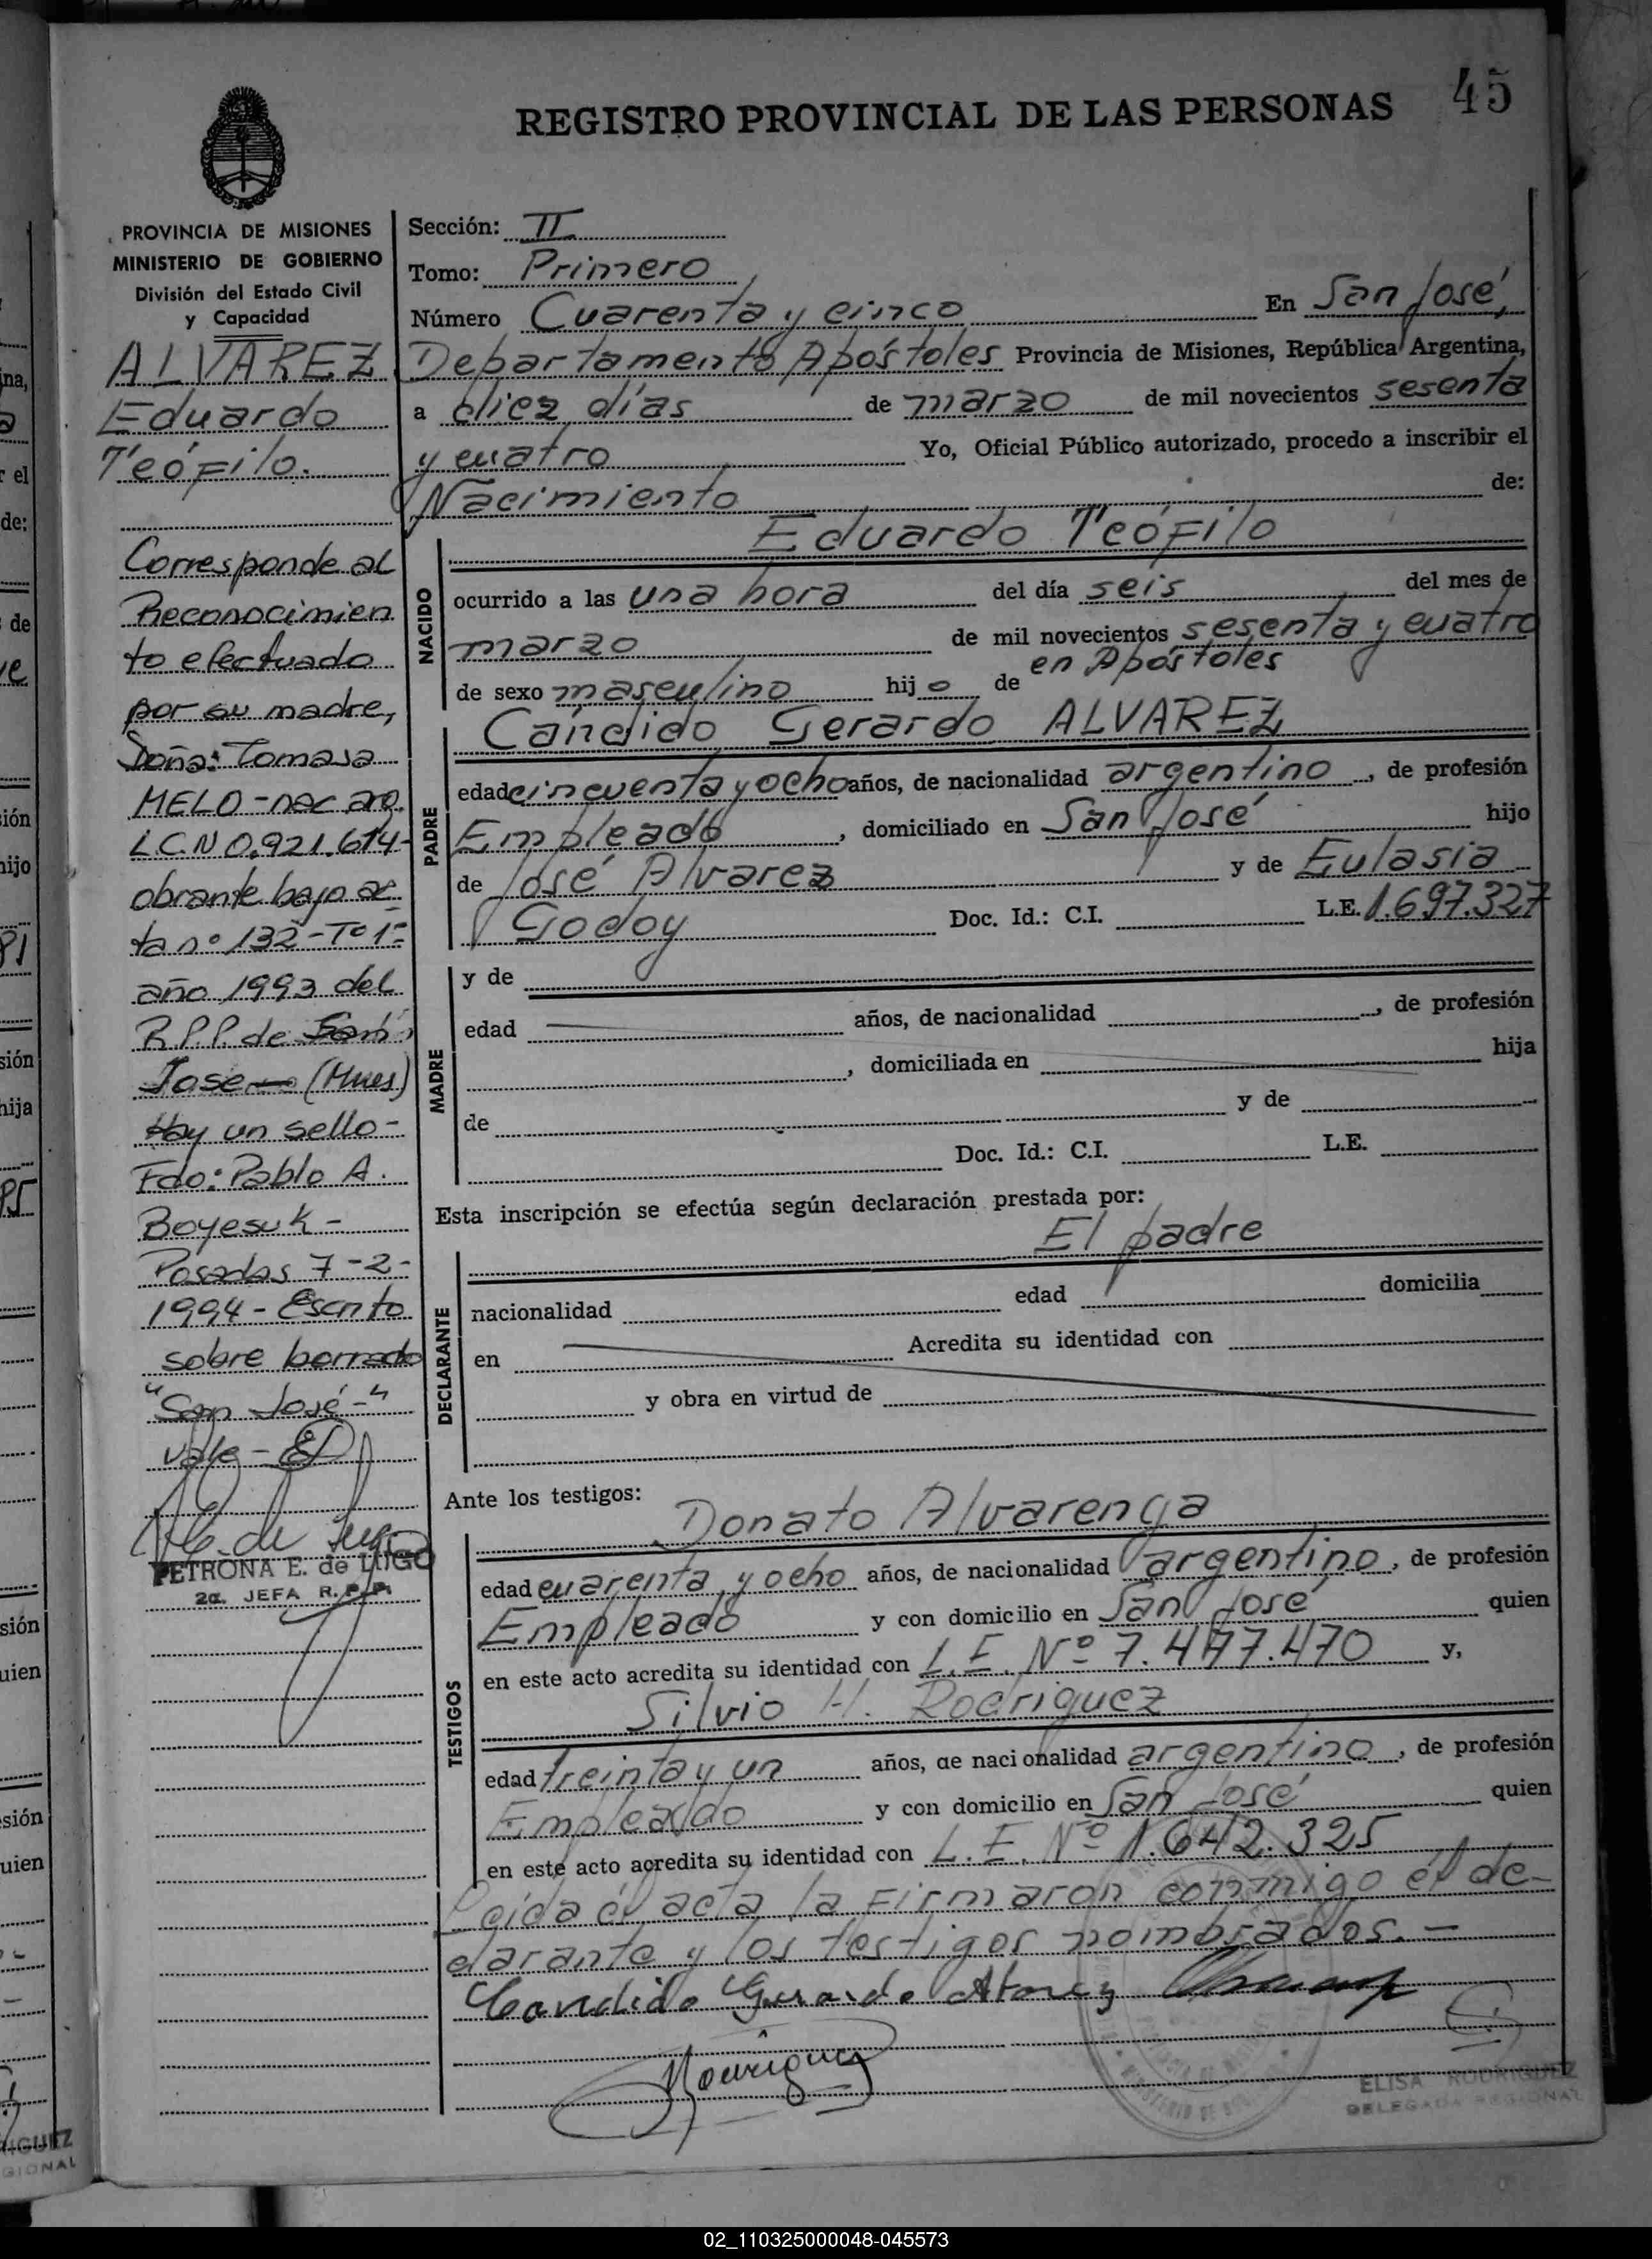 45
REGISTRO PROVINCIAL DE LAS PERSONAS
PROVINCIA DE MISIONES
MINISTERIO DE GOBIERNO
División del Estado Civil
y Capacidad
ALVAREZ
Eduardo
Teófilo.
Corresponde al
Reconocimien
to efectuado
por su madre,
Doña: Tomasa
MELO - nac arg.
L.C.N 0.921.614-
obrante bajo ac
ta nº 132 - Tº 1º
año 1993 del
R.P.P. de San
Jose (Mnes)
Hay un sello -
Fdo: Pablo A.
Boyesuk -
Posadas 7-2-
1994 - Escrito
sobre borrado
"San José -"
vale -
PETRONA E. de LUGO
2a. JEFA R. P. P.
Sección: II
Tomo: Primero
Número Cuarenta y cinco En San José,
Departamento Apóstoles Provincia de Misiones, República Argentina,
a diez días de marzo de mil novecientos sesenta
y cuatro Yo, Oficial Público autorizado, procedo a inscribir el
Nacimiento de:
Eduardo Teófilo
NACIDO
ocurrido a las una hora del día seis del mes de
marzo de mil novecientos sesenta y cuatro
en Apóstoles
de sexo masculino hijo de
Cándido Gerardo ALVAREZ
PADRE
edad cincuenta y ocho años, de nacionalidad argentino, de profesión
Empleado, domiciliado en San José hijo
de José Alvarez y de Eulasia
Godoy Doc. Id.: C.I. L.E. 1.697.327
MADRE
y de
edad años, de nacionalidad , de profesión
, domiciliada en hija
de y de
Doc. Id.: C.I. L.E.
Esta inscripción se efectúa según declaración prestada por:
El padre
DECLARANTE
nacionalidad edad domicilia
en Acredita su identidad con
y obra en virtud de
Ante los testigos:
Donato Alvarenga
TESTIGOS
edad cuarenta y ocho años, de nacionalidad argentino, de profesión
Empleado y con domicilio en San José quien
en este acto acredita su identidad con L.E. Nº 7.477.470 y,
Silvio H. Rodriguez
edad treinta y un años, de nacionalidad argentino, de profesión
Empleado y con domicilio en San José quien
en este acto acredita su identidad con L.E. Nº 1.642.325
Leída el acta la firmaron conmigo el de-
clarante y los testigos nombrados. -
Candido Gerardo Alvarez
Rodriguez
ELISA RODRIGUEZ
DELEGADA REGIONAL
02_110325000048-045573